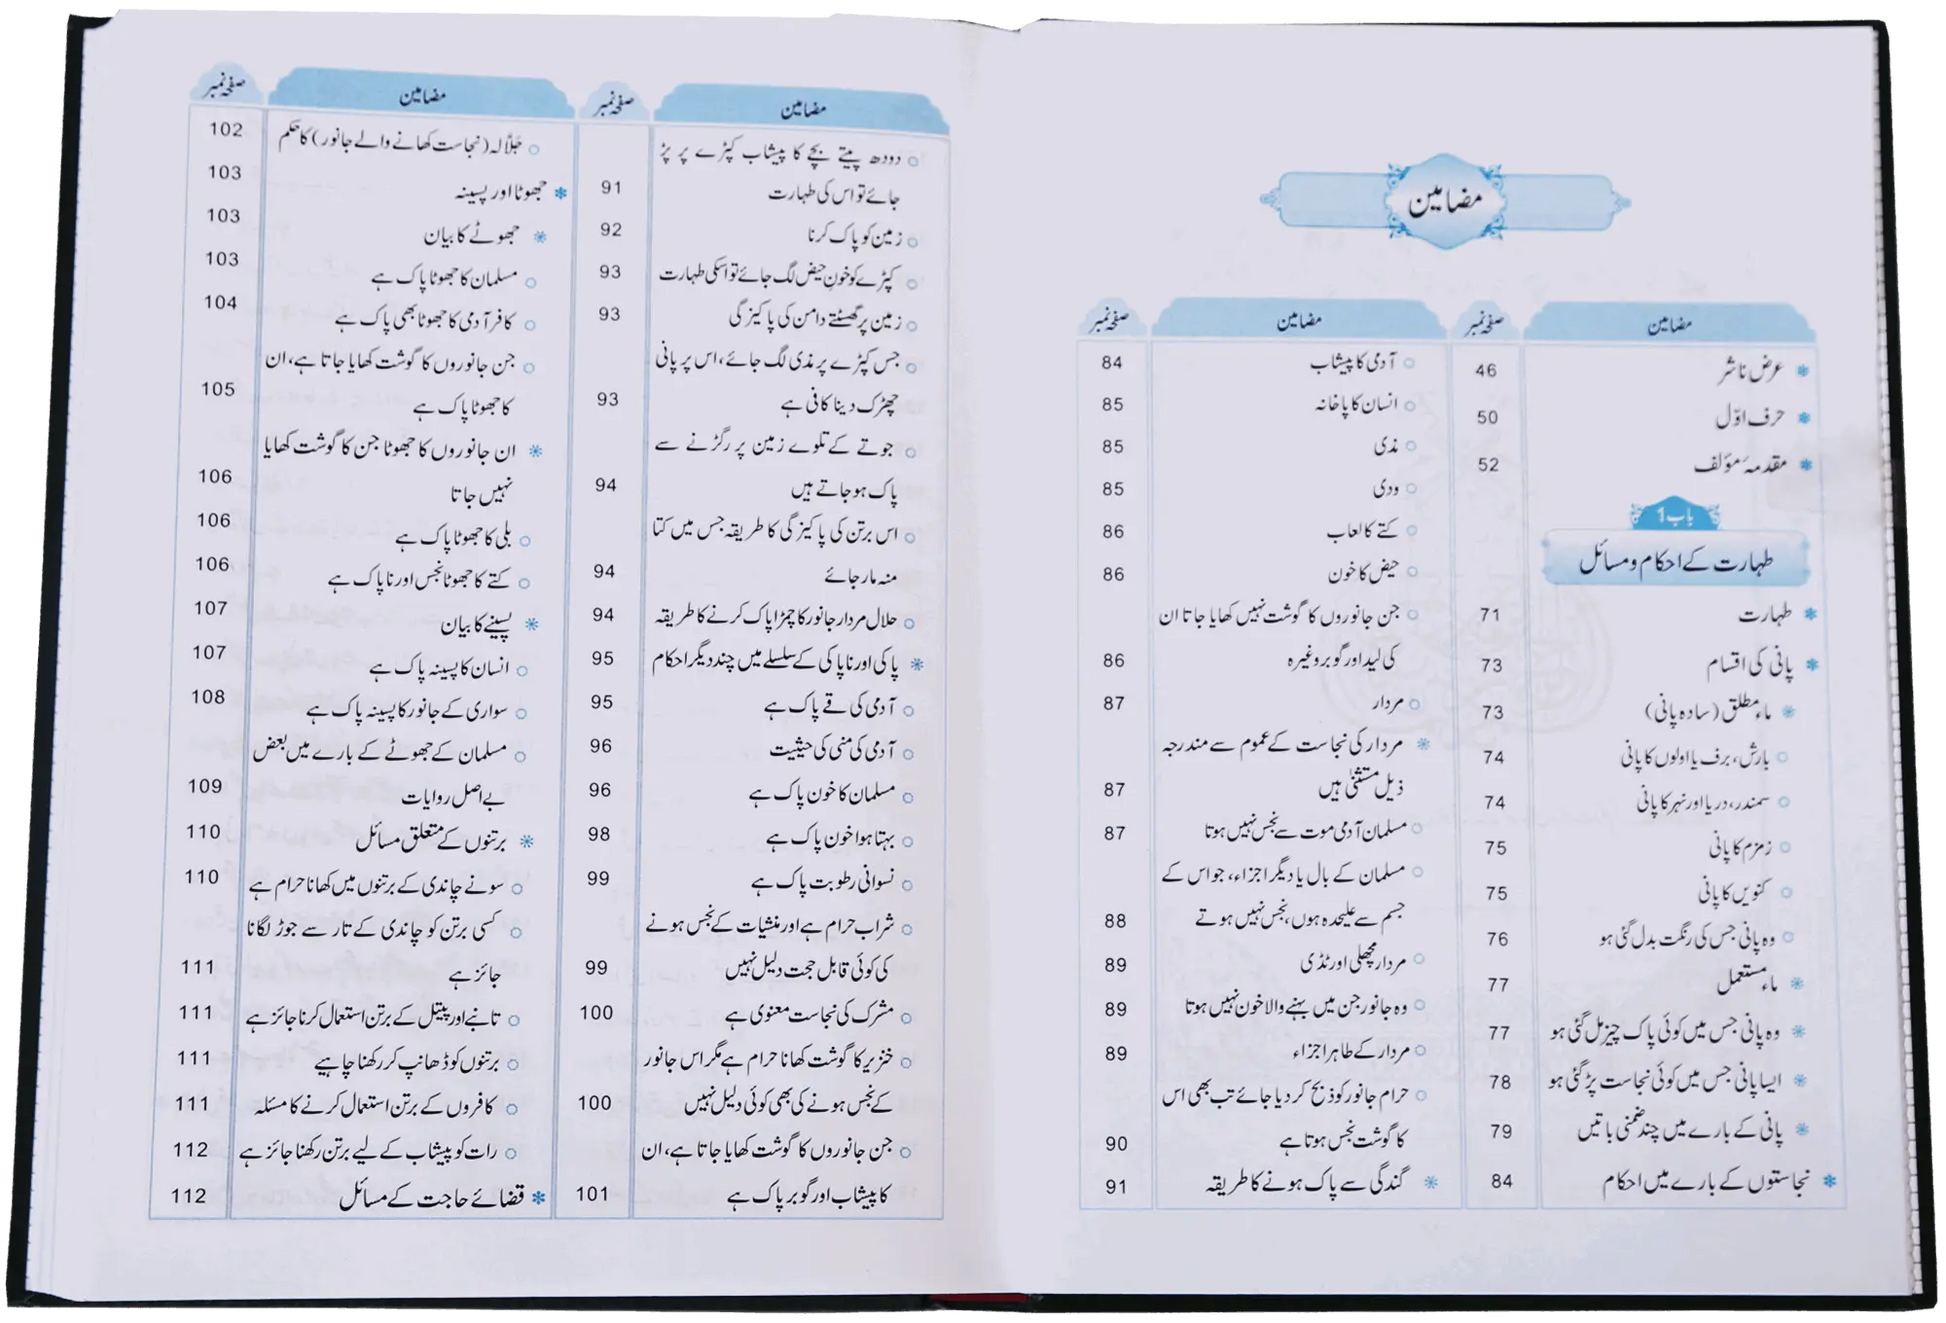 مضامین
مضامین صفحہ نمبر
عرض ناشر 46
حرف اوّل 50
مقدمۂ مؤلف 52
باب 1
طہارت کے احکام و مسائل
طہارت 71
پانی کی اقسام 73
ماء مطلق (سادہ پانی) 73
بارش، برف یا اولوں کا پانی 74
سمندر، دریا اور نہر کا پانی 74
زمزم کا پانی 75
کنویں کا پانی 75
وہ پانی جس کی رنگت بدل گئی ہو 76
ماء مستعمل 77
وہ پانی جس میں کوئی پاک چیز مل گئی ہو 77
ایسا پانی جس میں کوئی نجاست پڑ گئی ہو 78
پانی کے بارے میں چند ضمنی باتیں 79
نجاستوں کے بارے میں احکام 84
مضامین صفحہ نمبر
آدمی کا پیشاب 84
انسان کا پاخانہ 85
مذی 85
ودی 85
کتے کا لعاب 86
حیض کا خون 86
جن جانوروں کا گوشت نہیں کھایا جاتا ان
کی لید اور گوبر وغیرہ 86
مردار 87
مردار کی نجاست کے عموم سے مندرجہ
ذیل مستثنیٰ ہیں 87
مسلمان آدمی موت سے نجس نہیں ہوتا 87
مسلمان کے بال یا دیگر اجزاء، جو اس کے
جسم سے علیحدہ ہوں، نجس نہیں ہوتے 88
مردار مچھلی اور ٹڈی 89
وہ جانور جن میں بہنے والا خون نہیں ہوتا 89
مردار کے طاہر اجزاء 89
حرام جانور کو ذبح کر دیا جائے تب بھی اس
کا گوشت نجس ہوتا ہے 90
گندگی سے پاک ہونے کا طریقہ 91
مضامین صفحہ نمبر
دودھ پیتے بچے کا پیشاب کپڑے پر پڑ
جائے تو اس کی طہارت 91
زمین کو پاک کرنا 92
کپڑے کو خونِ حیض لگ جائے تو اسکی طہارت 93
زمین پر گھسٹتے دامن کی پاکیزگی 93
جس کپڑے پر مذی لگ جائے، اس پر پانی
چھڑک دینا کافی ہے 93
جوتے کے تلوے زمین پر رگڑنے سے
پاک ہو جاتے ہیں 94
اس برتن کی پاکیزگی کا طریقہ جس میں کتا
منہ مار جائے 94
حلال مردار جانور کا چمڑا پاک کرنے کا طریقہ 94
پاکی اور ناپاکی کے سلسلے میں چند دیگر احکام 95
آدمی کی قے پاک ہے 95
آدمی کی منی کی حیثیت 96
مسلمان کا خون پاک ہے 96
بہتا ہوا خون پاک ہے 98
نسوانی رطوبت پاک ہے 99
شراب حرام ہے اور منشیات کے نجس ہونے
کی کوئی قابل حجت دلیل نہیں 99
مشرک کی نجاست معنوی ہے 100
خنزیر کا گوشت کھانا حرام ہے مگر اس جانور
کے نجس ہونے کی بھی کوئی دلیل نہیں 100
جن جانوروں کا گوشت کھایا جاتا ہے، ان
کا پیشاب اور گوبر پاک ہے 101
مضامین صفحہ نمبر
جلّالہ (نجاست کھانے والے جانور) کا حکم 102
جھوٹا اور پسینہ 103
جھوٹے کا بیان 103
مسلمان کا جھوٹا پاک ہے 103
کافر آدمی کا جھوٹا بھی پاک ہے 104
جن جانوروں کا گوشت کھایا جاتا ہے، ان
کا جھوٹا پاک ہے 105
ان جانوروں کا جھوٹا جن کا گوشت کھایا
نہیں جاتا 106
بلی کا جھوٹا پاک ہے 106
کتے کا جھوٹا نجس اور ناپاک ہے 106
پسینے کا بیان 107
انسان کا پسینہ پاک ہے 107
سواری کے جانور کا پسینہ پاک ہے 108
مسلمان کے جھوٹے کے بارے میں بعض
بے اصل روایات 109
برتنوں کے متعلق مسائل 110
سونے چاندی کے برتنوں میں کھانا حرام ہے 110
کسی برتن کو چاندی کے تار سے جوڑ لگانا
جائز ہے 111
تانبے اور پیتل کے برتن استعمال کرنا جائز ہے 111
برتنوں کو ڈھانپ کر رکھنا چاہیے 111
کافروں کے برتن استعمال کرنے کا مسئلہ 111
رات کو پیشاب کے لیے برتن رکھنا جائز ہے 112
قضائے حاجت کے مسائل 112